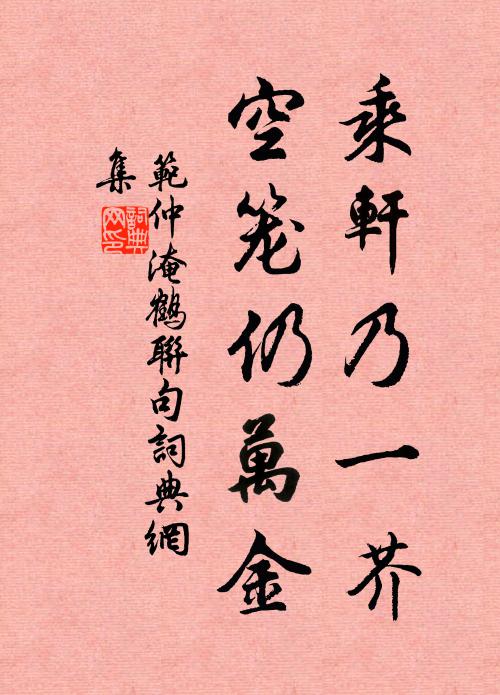 乘軒乃一芥
空笼仍萬金
範仲淹鶴聯句詞典網
集
詞典
网印